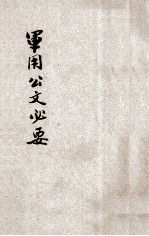 軍用公文必要